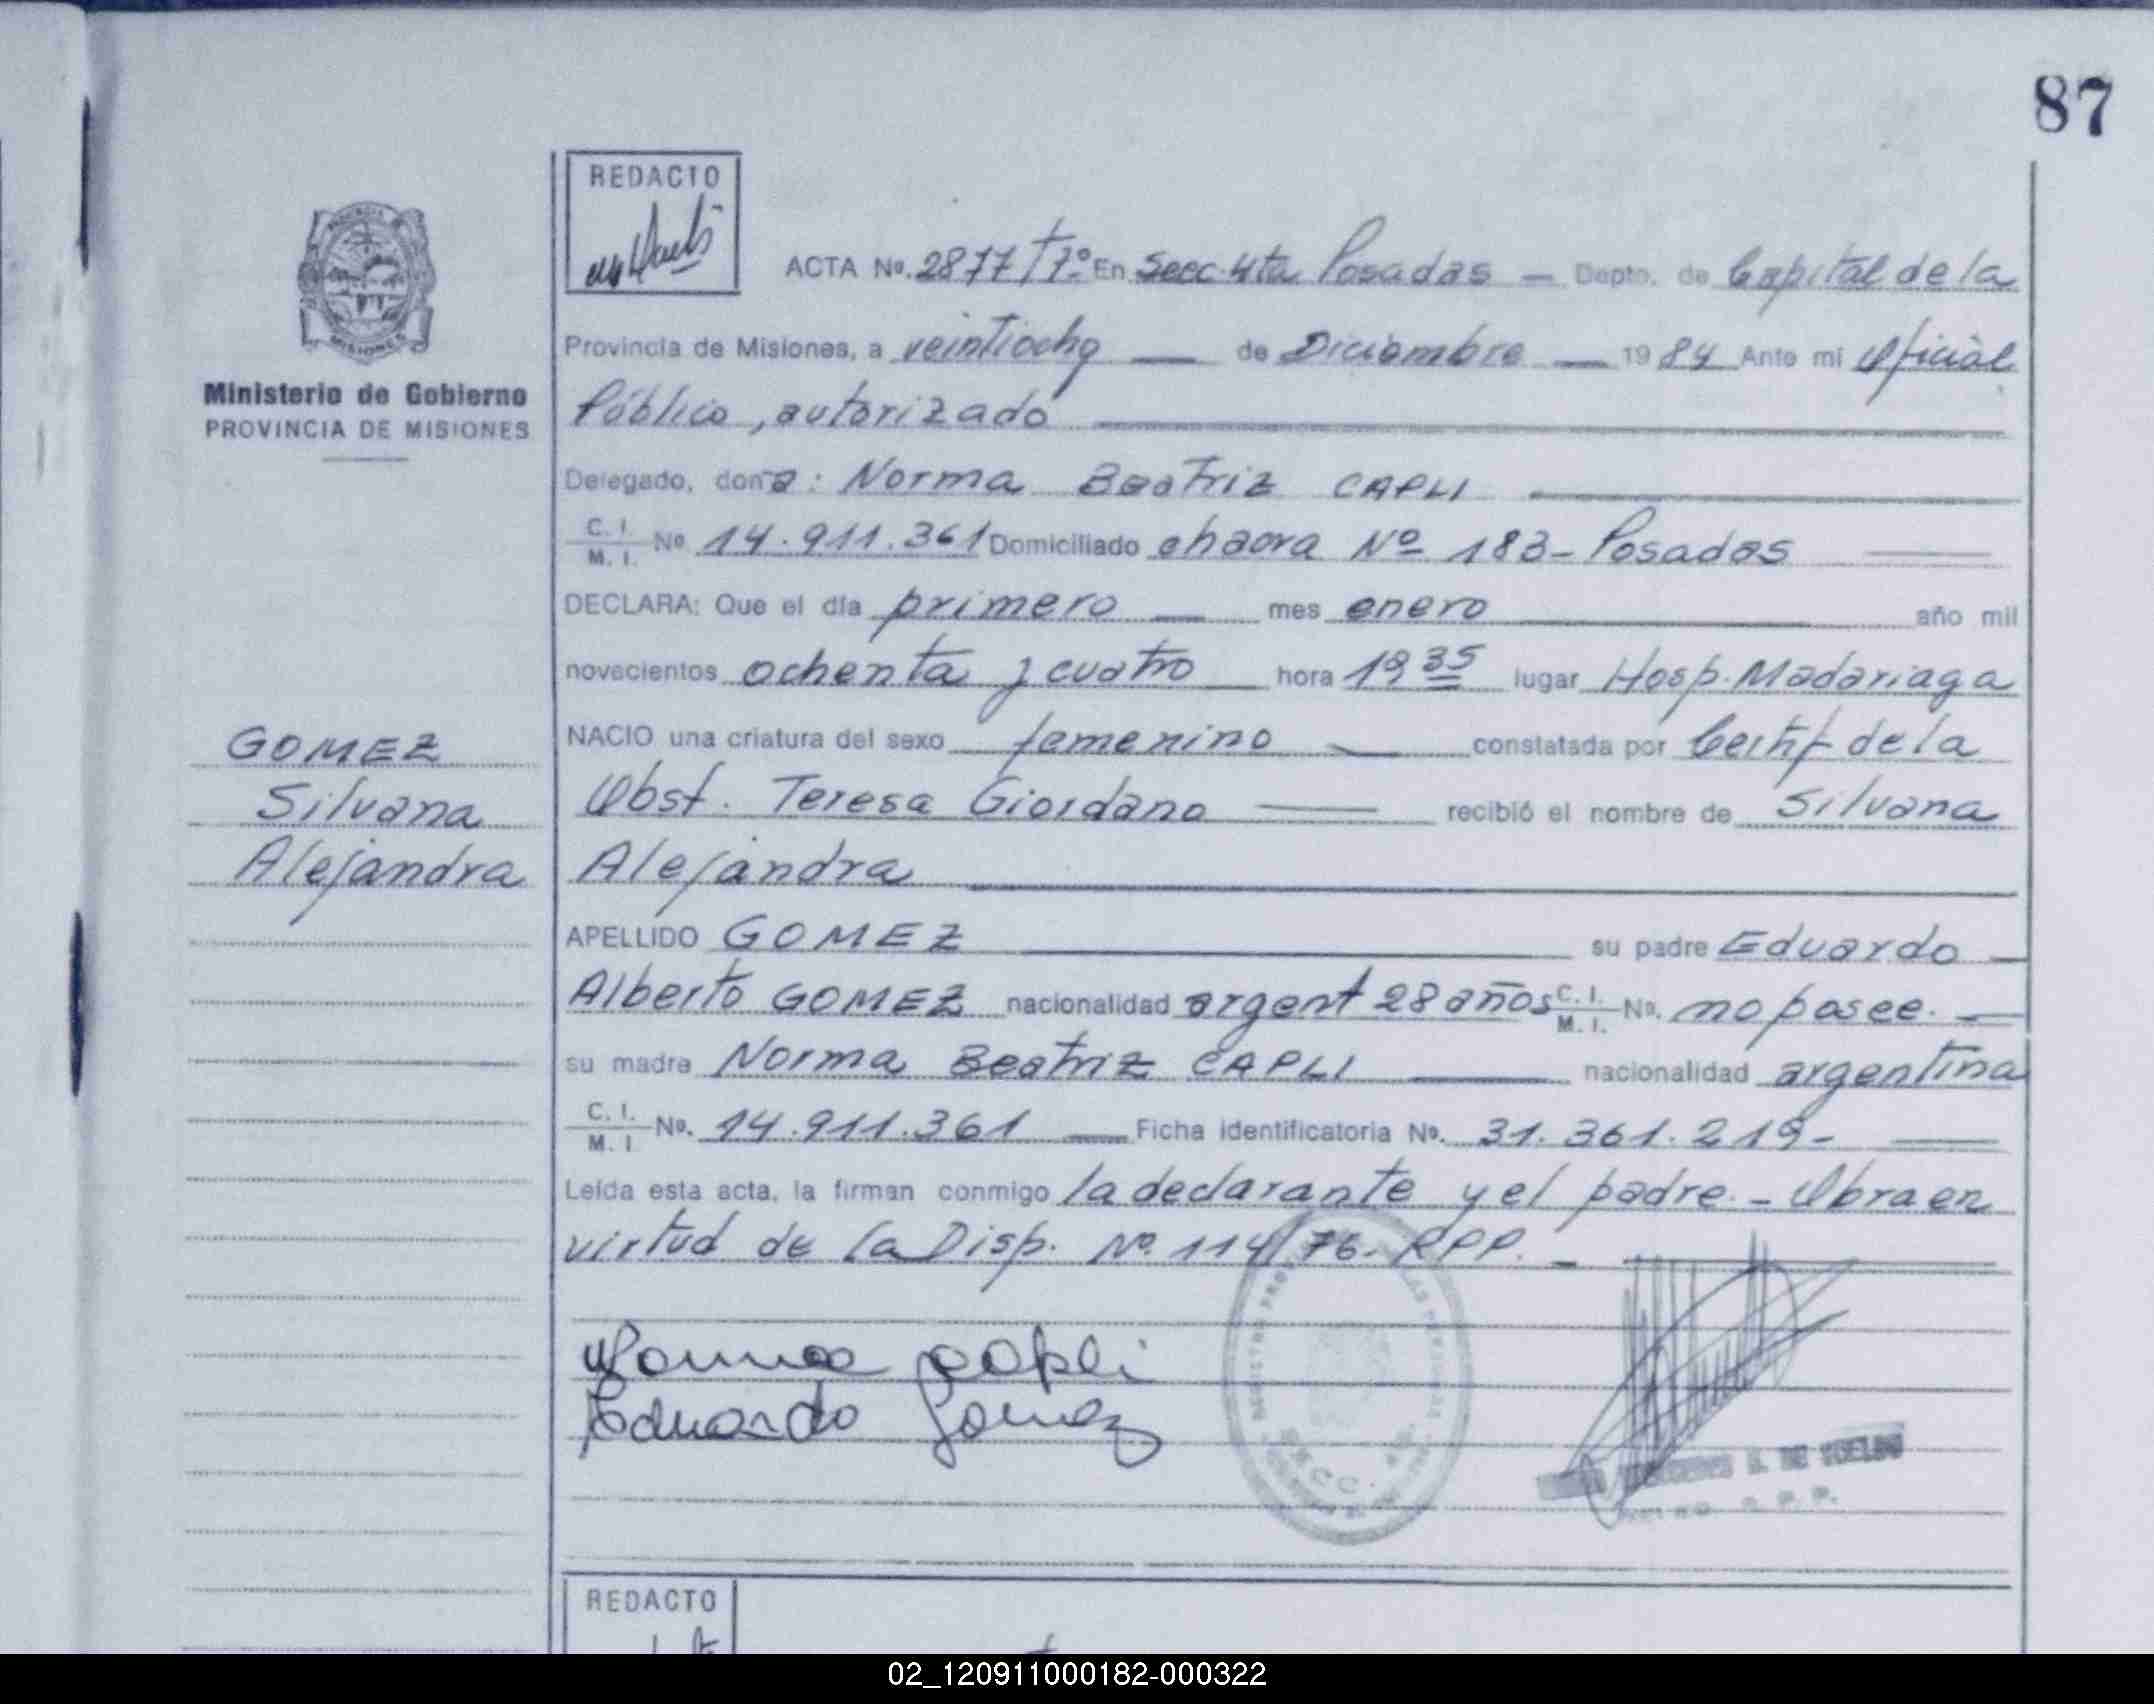 87
REDACTO
ACTA Nº. 2877 Tº 7º En Secc. 4ta Posadas — Depto. de Capital de la
Provincia de Misiones, a veintiocho — de Diciembre — 1984 Ante mi Oficial
Público, autorizado
MISIONES
Ministerio de Gobierno
PROVINCIA DE MISIONES
Delegado, doña: Norma Beatriz CAPLI
C. I. / M. I. Nº 14.911.361 Domiciliado chacra Nº 183 - Posadas
DECLARA: Que el día primero — mes enero — año mil
novecientos ochenta y cuatro — hora 19 35 lugar Hosp. Madariaga
NACIO una criatura del sexo femenino — constatada por Certif de la
Obst. Teresa Giordano — recibió el nombre de Silvana
Alejandra
GOMEZ
Silvana
Alejandra
APELLIDO GOMEZ — su padre Eduardo —
Alberto GOMEZ nacionalidad argent 28 años C. I. / M. I. Nº. no posee. —
su madre Norma Beatriz CAPLI — nacionalidad argentina
C. I. / M. I Nº. 14.911.361 — Ficha identificatoria Nº. 31.361.219 -
Leída esta acta, la firman conmigo la declarante y el padre. - Obra en
virtud de la Disp. Nº. 114/76. RPP. —
Norma Capli
Eduardo Gomez
SECC. 4
REDACTO
02_120911000182-000322